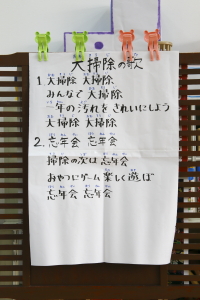 大掃除の歌
1. 大掃除 大掃除
みんなで 大掃除
一年の 汚れを きれいにしよう
大掃除 大掃除
2. 忘年会 忘年会
掃除の次は 忘年会
おやつにゲーム 楽しく遊ぼ
忘年会 忘年会